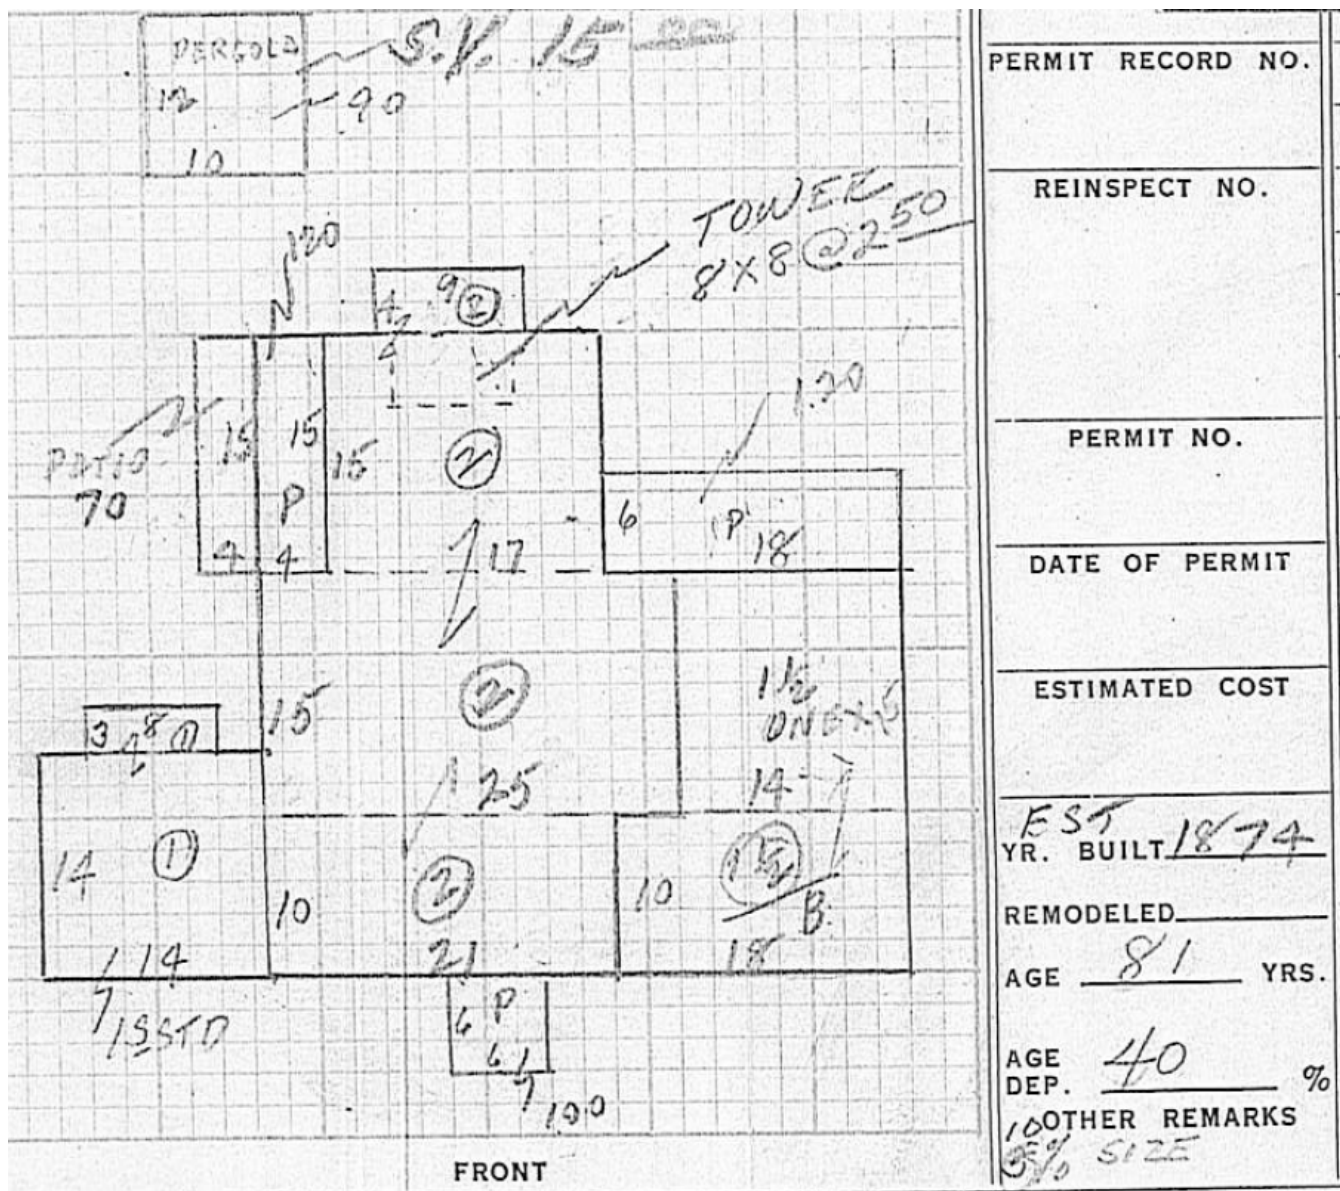 PERGOLA
S.V. 15
12
90
10
TOWER
8X8 @ 250
120
4
9
PATIO
70
15
15
15
P
4
4
17
120
6
P
18
2
2
15
25
1½
14
3
8
1
14
1
14
1SSTD
10
2
21
10
B.
18
P
6
6
100
FRONT
PERMIT RECORD NO.
REINSPECT NO.
PERMIT NO.
DATE OF PERMIT
ESTIMATED COST
EST
YR. BUILT 1874
REMODELED
AGE 81 YRS.
AGE
DEP. 40 %
OTHER REMARKS
10
5% SIZE